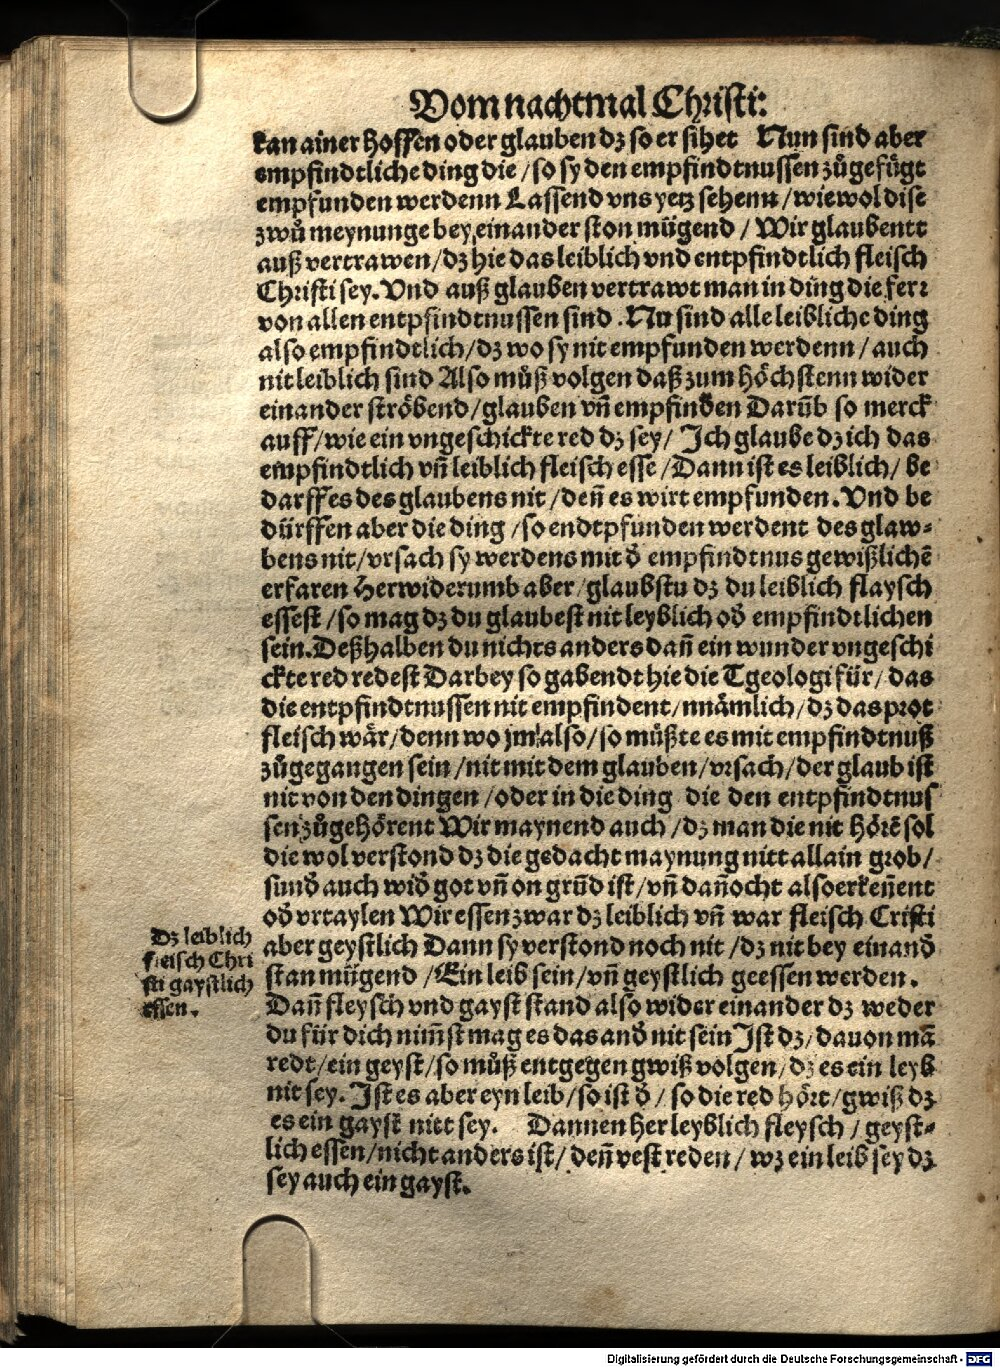 Vom nachtmal Christi:
kan ainer hoffen oder glauben dz so er sihet Nun sind aber
empfindtliche ding die / so sy den empfindtnussen zůgefügt
empfunden werdenn Lassend vns yetz sehenn / wiewol dise
zwů meynunge bey einander ston mügend / Wir glaubentt
auß vertrawen / dz hie das leiblich vnd entpfindtlich fleisch
Christi sey. Vnd auß glauben vertrawt man in ding die ferr
von allen entpfindtnussen sind . Nu sind alle leibliche ding
also empfindtlich / dz wo sy nit empfunden werdenn / auch
nit leiblich sind Also můß volgen daß zum höchstenn wider
einander ströbend / glauben vñ empfinden Darüb so merck
auff / wie ein vngeschickte red dz sey / Ich glaube dz ich das
empfindtlich vñ leiblich fleisch esse / Dann ist es leiblich / be
darff es des glaubens nit / deñ es wirt empfunden. Vnd be
dürffen aber die ding / so endtpfunden werdent des glaw-
bens nit / vrsach sy werdens mit d̕ empfindtnus gewißlichē
erfaren Herwiderumb aber / glaubstu dz du leiblich flaysch
essest / so mag dz du glaubest nit leyblich od̕ empfindtlichen
sein. Deßhalben du nichts anders dañ ein wunder vngeschi
ckte red redest Darbey so gabendt hie die Tgeologi für / das
die entpfindtnussen nit empfindent / nnämlich / dz das prot
fleisch wär / denn wo jm also / so müßte es mit empfindtnuß
zůgegangen sein / nit mit dem glauben / vrsach / der glaub ist
nit von den dingen / oder in die ding die den entpfindtnus
sen zůgehörent Wir maynend auch / dz man die nit hörē sol
die wol verstond dz die gedacht maynung nitt allain grob /
sund̕ auch wid̕ got vñ on grūd ist / vñ dañocht also erkeñent
od̕ vrtaylen Wir essen zwar dz leiblich vñ war fleisch Cristi
aber geystlich Dann sy verstond noch nit / dz nit bey einand̕
stan mügend / Ein leib sein / vñ geystlich geessen werden.
Dañ fleysch vnd gayst stand also wider einander dz weder
du für dich nim̄st mag es das and̕ nit sein Ist dz / dauon mā
redt / ein geyst / so můß entgegen gwiß volgen / dz es ein leyb
nit sey. Ist es aber eyn leib / so ist d̕ / so die red hört / gwiß dz
es ein gayst nitt sey. Dannen her leyblich fleysch / geyst-
lich essen / nicht anders ist / deñ vest reden / wz ein leib sey dz
sey auch ein gayst.
Dz leiblich
fleisch Chri
sti gaystlich
essen.
Digitalisierung gefördert durch die Deutsche Forschungsgemeinschaft - DFG